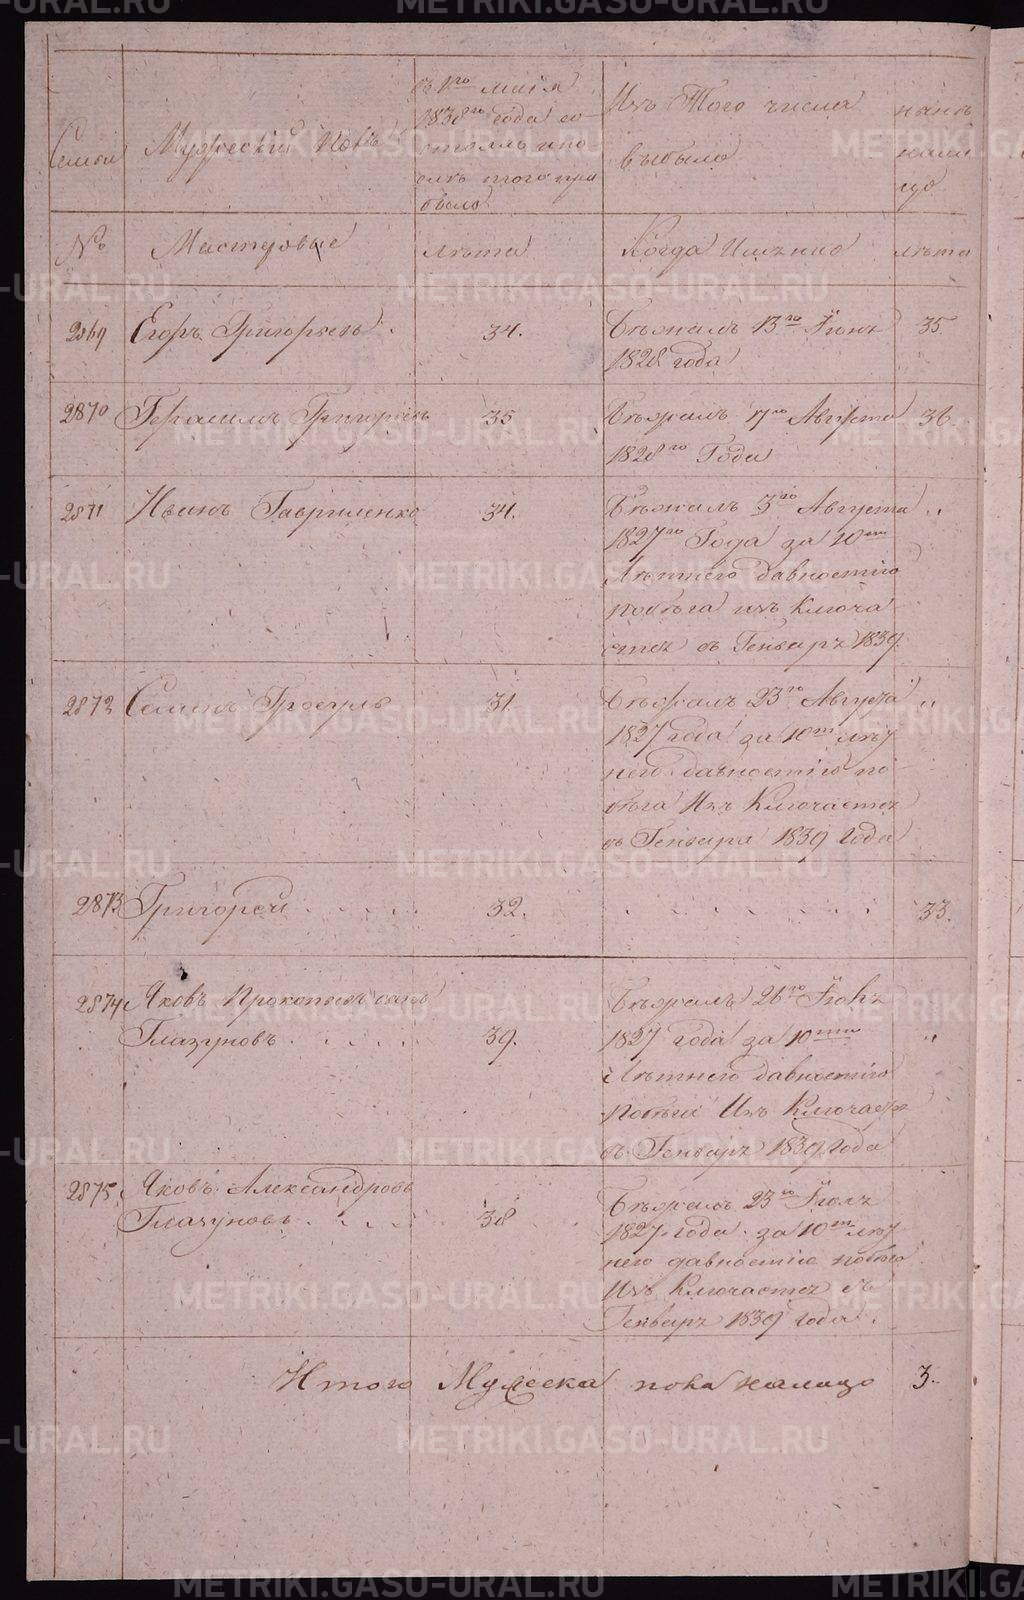 Семьи
Мужеский Полъ
съ 1го маія
1838го года со-
стояло и по-
слѣ того при
было
Изъ Того числа
выбыло
нынѣ
на ли
цо
№
Мастеровые
лѣта
Когда Имянно
лѣта
2869 Егоръ Григорьевъ 34. Бѣжалъ 13го Іюня 35.
1828 года
2870 Герасимъ Григорьевъ 35 Бѣжалъ 17го Августа 36.
1828го Года
2871 Иванъ Гавриленко 34. Бѣжалъ 3го Августа "
1827го Года за 10ти
Лѣтнею давностію
побѣга изъ Ключа
ется въ Генварѣ 1839.
2872 Семенъ 31. Бѣжалъ 23го Августа "
1827 года за 10ти лѣт
нею давностію по-
бѣга Изъ Ключается
въ Генваря 1839 Года
2873 Григорей . . . . 32. . . . . . . 33.
2874 Яковъ Прокопьевъ сынъ Бѣжалъ 26го Іюня
Глазуновъ . . . . . 39. 1827 года за 10ти "
Лѣтнею давностію
побѣга Изъ Ключается
въ Генварѣ 1839 Года
2875 Яковъ Александровъ Бѣжалъ 23го Іюля
Глазуновъ . . . . 38 1827 года за 10ти лѣт
нею давностію побѣга
Изъ Ключается въ
Генварѣ 1839 года.
Итого Мужеска пола налицо 3.
METRIKI.GASO-URAL.RU